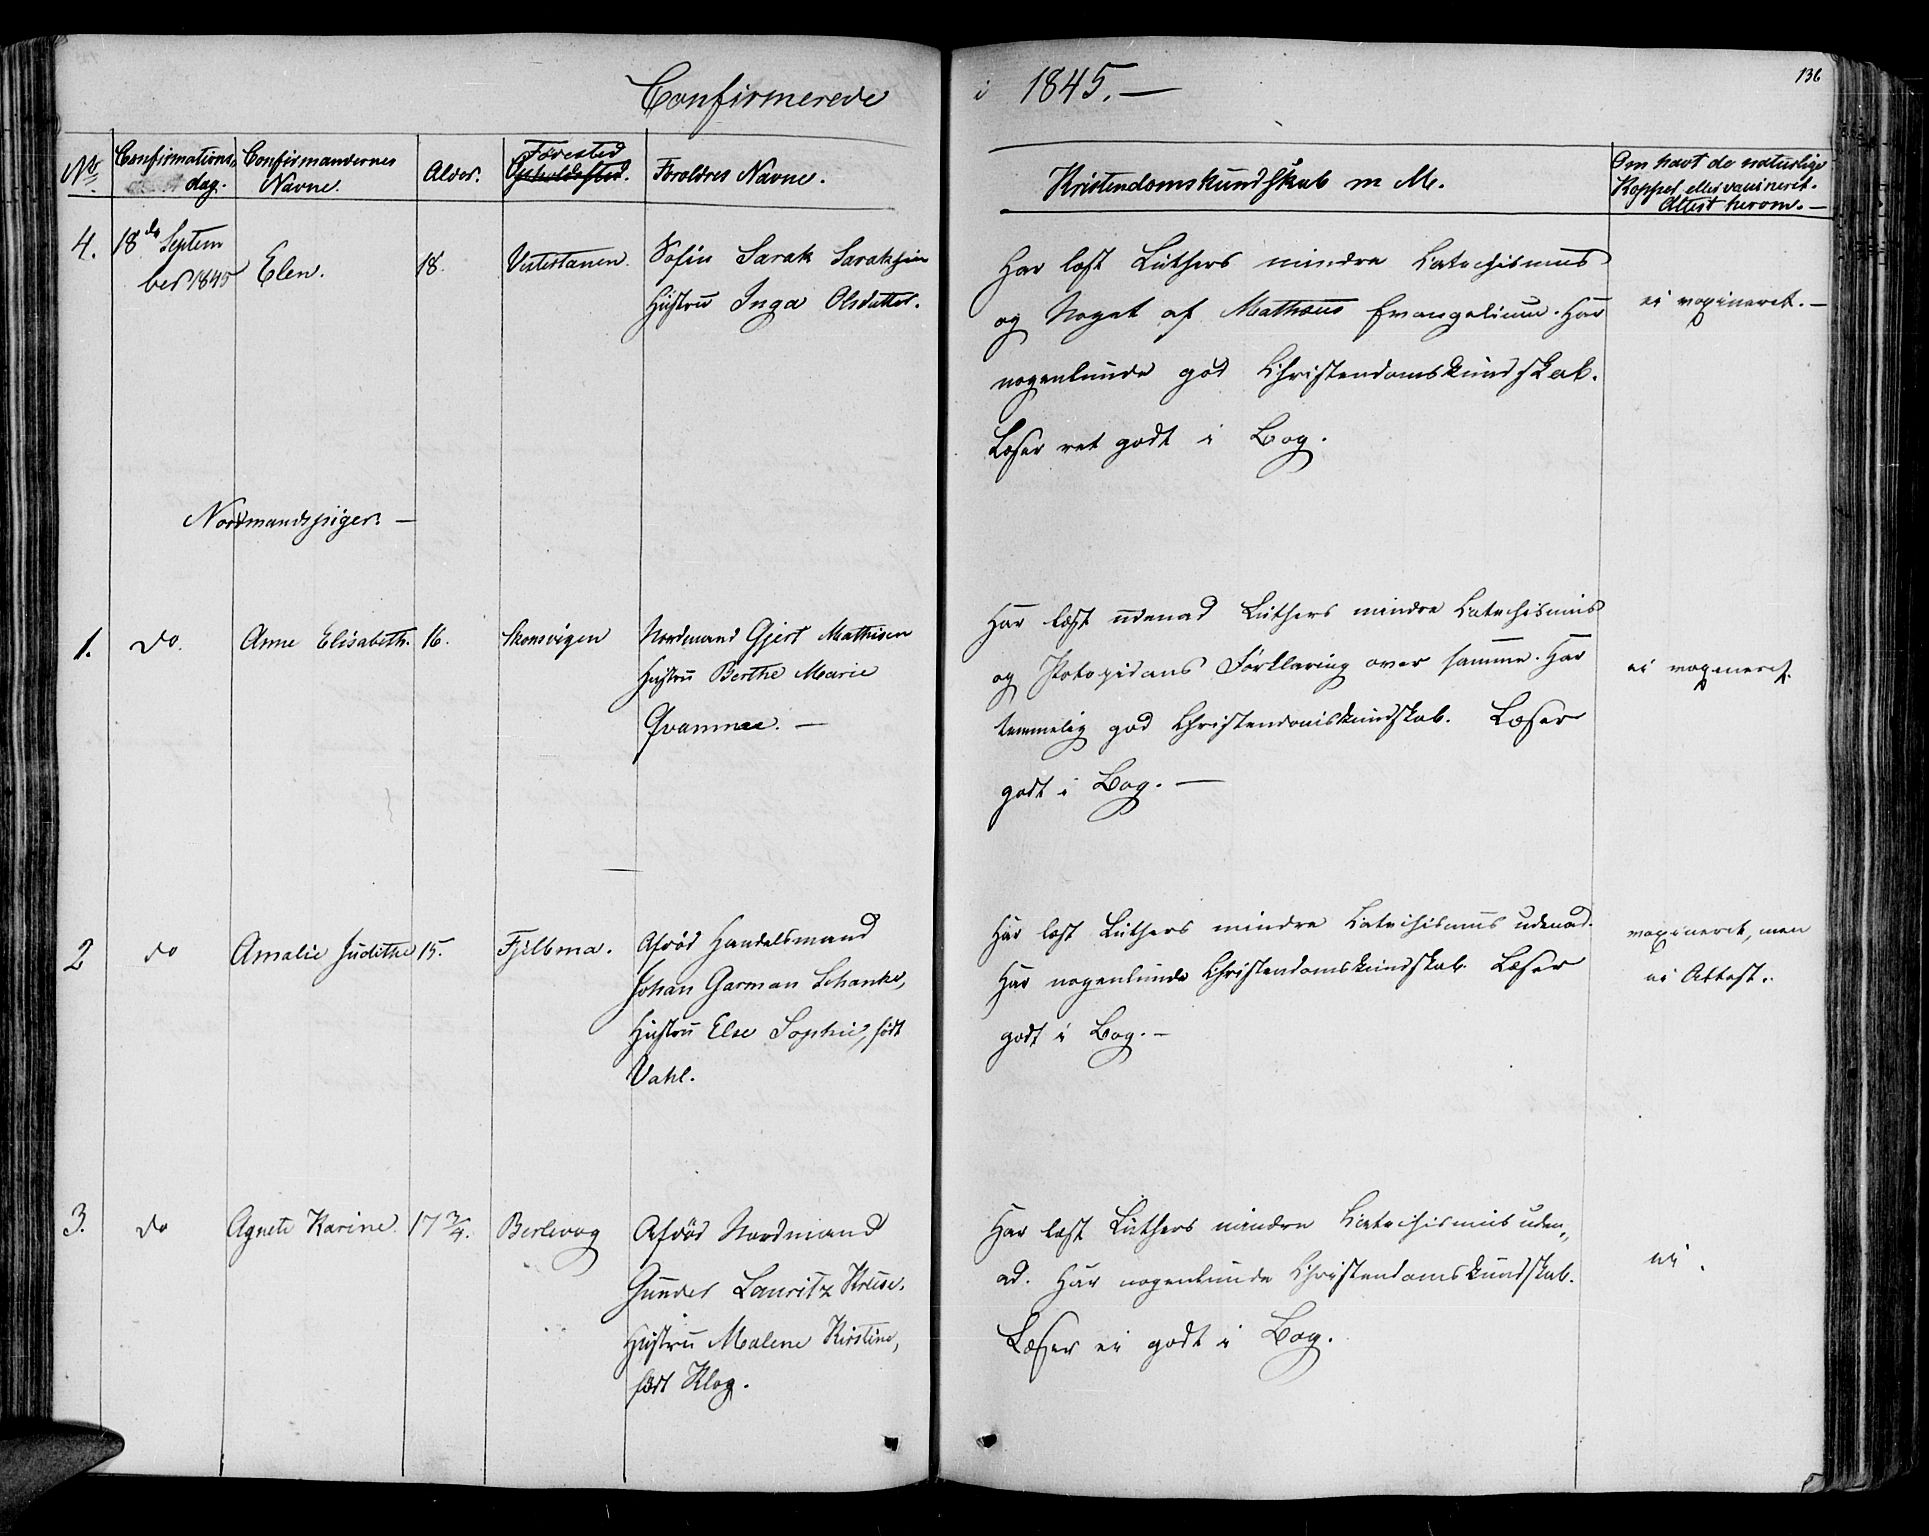 Confirmerede i 1845.—
136
No
Confirmations
dag.
Confirmandernes
Navne.
Alder.
Fødested
Opholdssted.
Foroldres Navne.
Kristendomskundskab m M.
Om havt de naturlige
Kopper, eller vaccineret.
Attest herom.—
4.
18de Septem
ber 1845
Elen.
18.
Vestertanen.
Sarak Saraksen
Hustru Inga Olsdatter.
Har læst Luthers mindre Catechismus
og Noget af Mathæus Evangelium. Har
nogenlunde god Christendomskundskab.
Læser ret godt i Bog.
ei vaxineret.—
Nordmandspiger. —
1.
do.
Anne Elisabeth.
16.
Skonsvigen
Nordmand Gjert Mathisen
Hustru Berthe Marie
Qvamme. —
Har læst udenad Luthers mindre Catechismus
og Potopidans Forklaring over samme. Har
temmelig god Christendomskundskab. Læser
godt i Bog. —
ei vaxineret.
2
do
Amalie Judithe
15.
Fjelbma.
Afdød Handelsmand
Johan Garman Schanke,
Hustru Else Sophie, født
Vahl.
Har læst Luthers mindre Catechismus udenad.
Har nogenlunde Christendomskundskab. Læser
godt i Bog. —
vaxineret, men
ei Attest.
3.
do
Agnete Karine.
17 3/4.
Berlevog
Afdød Nordmand
Gunder Lauritz Kruse.
Hustru Malene Kirstine,
født Klog.
Har læst Luthers mindre Catechismus uden„
ad. Har nogenlunde Christendomskundskab.
Læser ei godt i Bog.
ei.